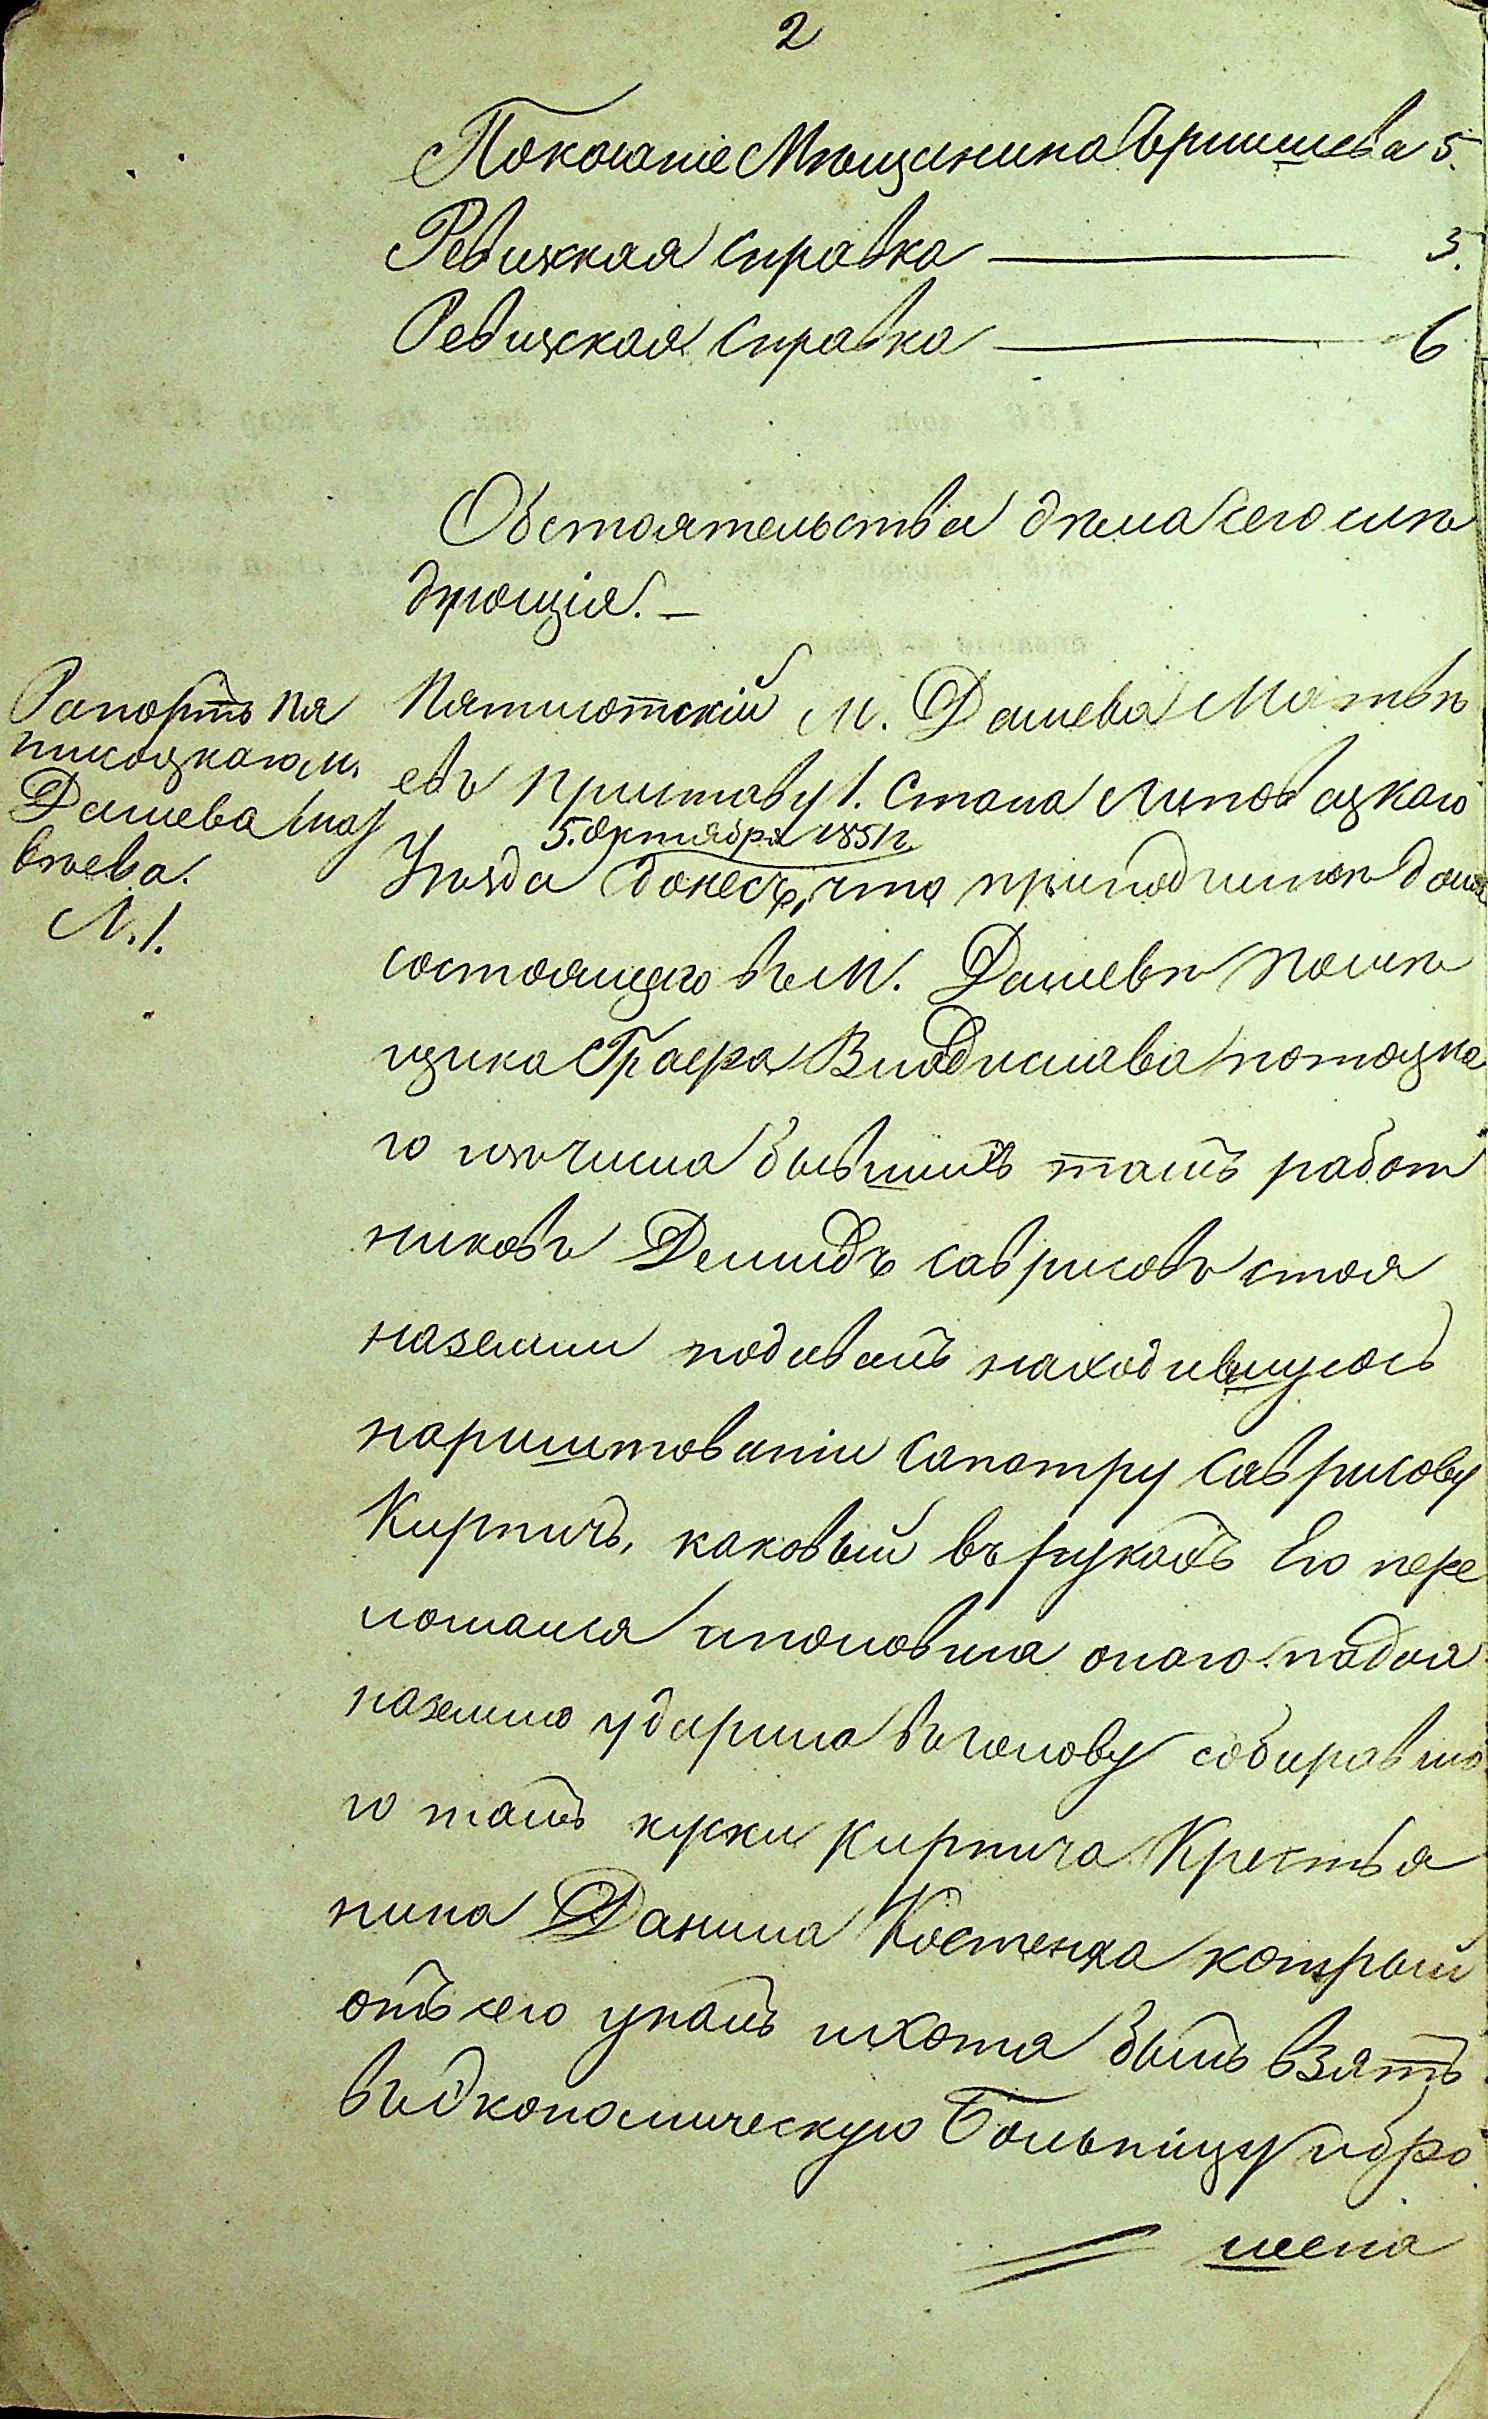 2
Показаніе Мѣщанина Ершшева 5.
Ревизкая справка — 5.
Ревизская справка — 6
Обстоятельства дѣла сего слѣ
дующія. —
Рапортъ Пя
тисоцкаго м.
Дашева Мат
вѣева.
Л. 1.
Пятисотскій м. Дашева Матвѣ
евъ Приставу 1. Стана Липовецкаго
5. Октября 1851 г.
Уѣзда донесъ, что при подчисткѣ дома
состоящаго въ М. Дашевѣ Помѣ
щика Графа Владислава Потоцка
го изъ числа бывшихъ тамъ работ
никовъ Демидъ Саврисовъ стоя
на земли подавалъ находившуюсь
на риштованіи Сапотру Саврисову
Кирпичъ, каковый въ рукахъ Его пере
ломался и половина онаго падая
на землю ударила въ голову собиравша
го тамъ куски кирпича Крестья
нина Данила Костенка который
отъ сего упалъ и хотя былъ взятъ
въ Экономическую Больницу и бро
шена